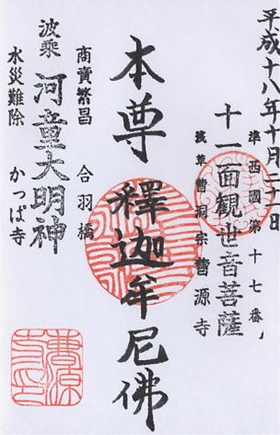 平成十八年 月二 日
準西國第十七番
十一面観世音菩薩
浅草曹洞宗曹源寺
本尊 釋迦牟尼佛
商賣繁昌 合羽橋
波乗 河童大明神
水災難除 かっぱ寺
曹源寺印